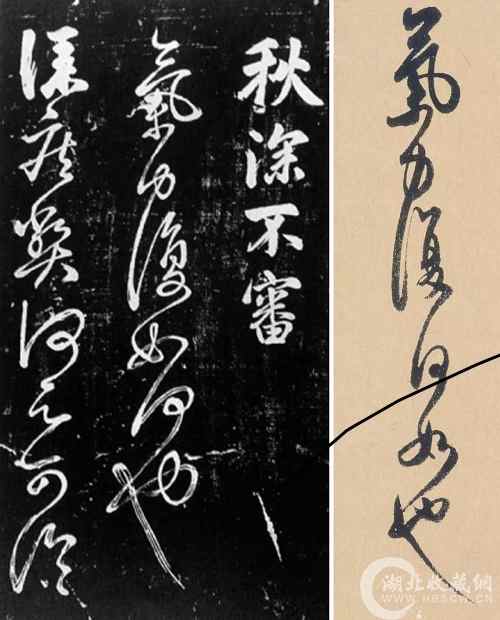 秋深不審
氣力復如何也
疾弊何可
氣力復何如也
湖北收藏網
WWW.HBSCW.CN